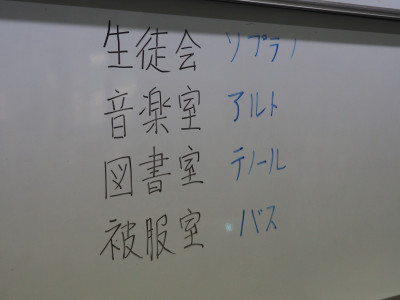 生徒会 ソプラノ
音楽室 アルト
図書室 テノール
被服室 バス